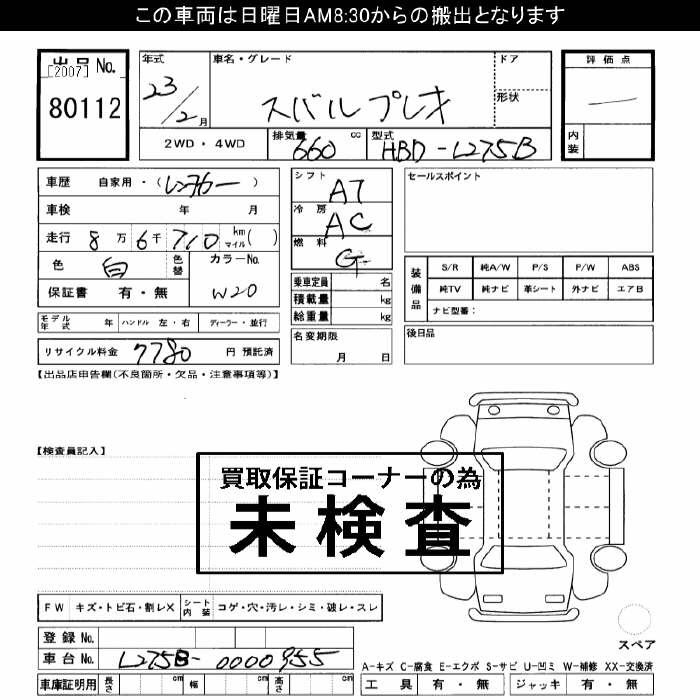 この車両は日曜日AM8:30からの搬出となります
出品 No.
[2007]
80112
年式
23/2月
車名・グレード
スバルプレオ
ドア
形状
評価点
—
内装
2WD・4WD
排気量 660 cc
型式 HBD-L275B
車歴 自家用・(レンタカー)
車検 年 月
走行 8万6千710 km マイル( )
色 白 色替
カラーNo. W20
保証書 有・無
シフト AT
冷房 AC
燃料 G
乗車定員 名
積載量 kg
総重量 kg
名変期限
月 日
セールスポイント
装備品
S/R 純A/W P/S P/W ABS
純TV 純ナビ 革シート 外ナビ エアB
ナビ型番:
後日品
モデル年式 年 ハンドル 左・右 ディーラー・並行
リサイクル料金 7780 円 預託済
【出品店申告欄(不良箇所・欠品・注意事項等)】
【検査員記入】
買取保証コーナーの為
未検査
FW キズ・トビ石・割レX シート内装 コゲ・穴・汚レ・シミ・破レ・スレ
登録 No.
車台 No. L275B-0000955
車庫証明用 長さ cm 幅 cm 高さ cm
スペア
A-キズ C-腐食 E-エクボ S-サビ U-凹ミ W-補修 XX-交換済
工具 有・無 ジャッキ 有・無